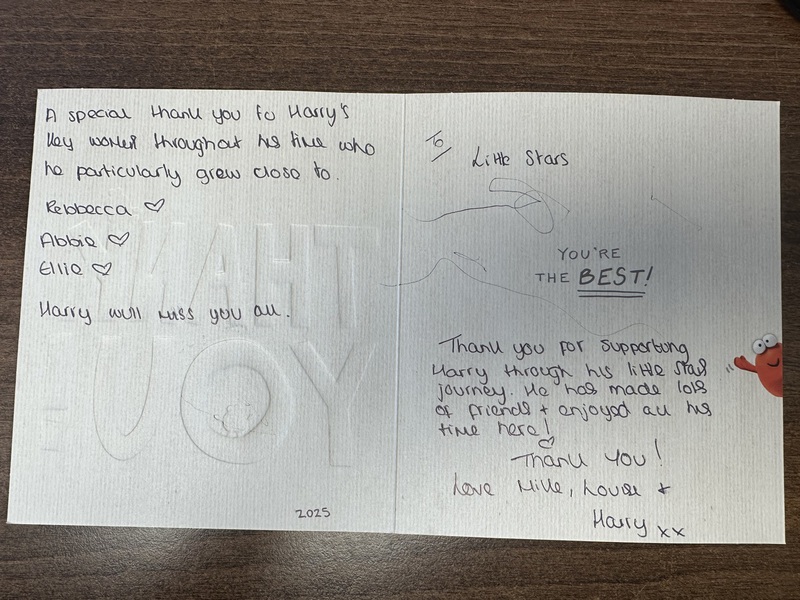 A special thank you to Harry's
key worker throughout his time who
he particularly grew close to.
Rebbecca ♡
Abbie ♡
Ellie ♡
Harry will miss you all.
THANK
YOU
2025
To
Little Stars
YOU'RE
THE BEST!
Thank you for supporting
Harry through his little star
journey. He has made lots
of friends + enjoyed all his
time here!
♡
Thank you!
Love Mike, Louise +
Harry xx